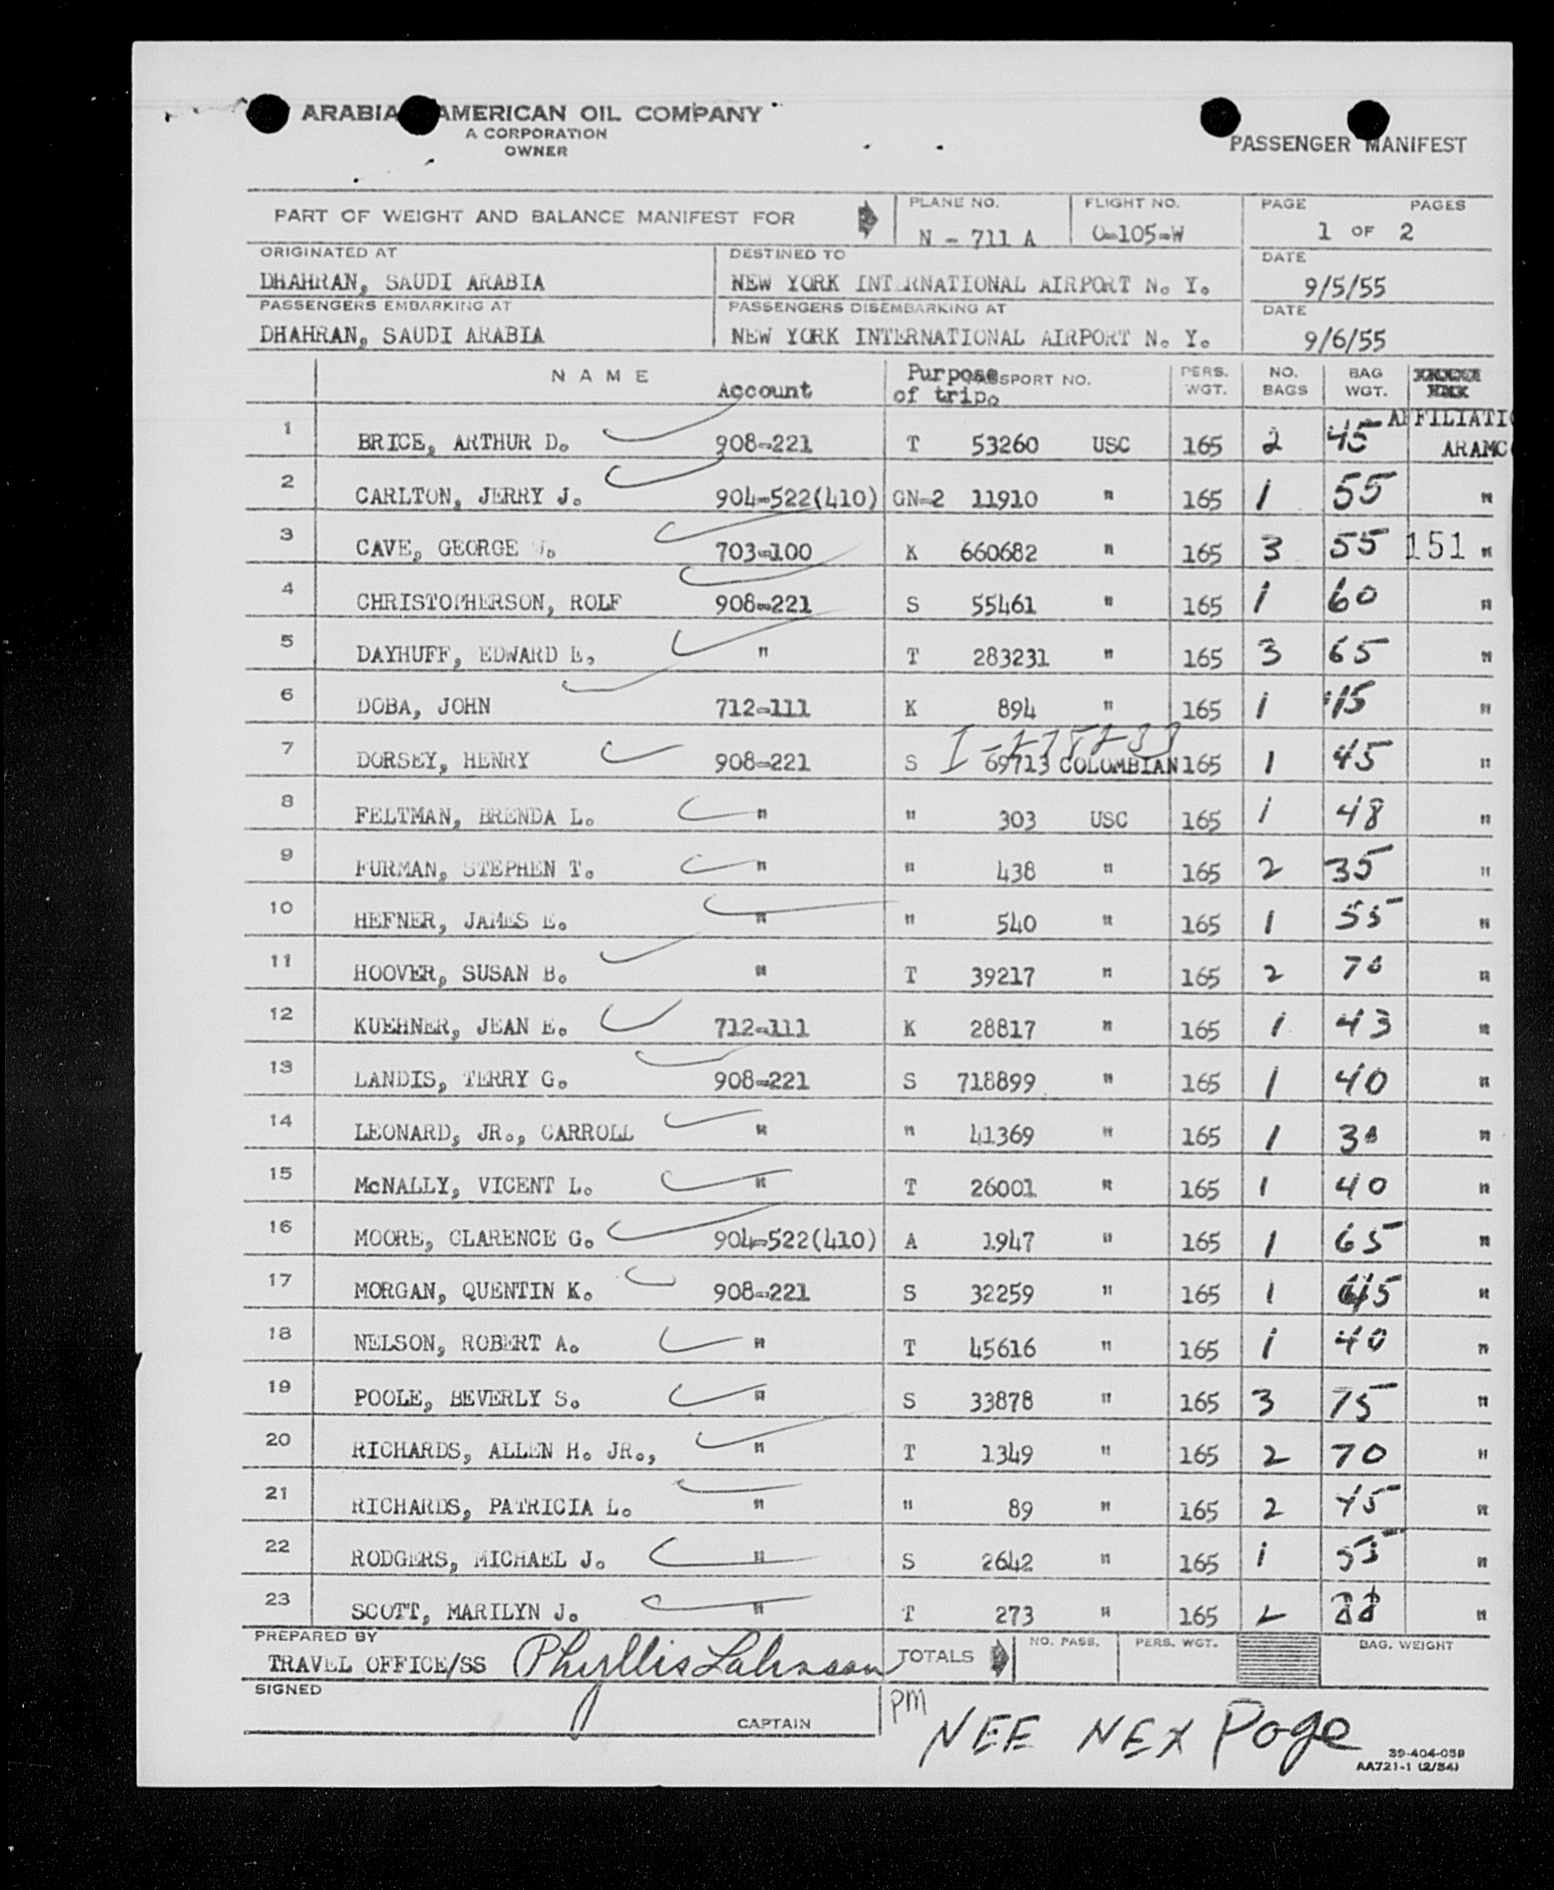 ARABIA AMERICAN OIL COMPANY
A CORPORATION
OWNER
PASSENGER MANIFEST
PART OF WEIGHT AND BALANCE MANIFEST FOR
PLANE NO.
N - 711 A
FLIGHT NO.
O-105-W
PAGE PAGES
1 OF 2
ORIGINATED AT
DHAHRAN, SAUDI ARABIA
DESTINED TO
NEW YORK INTERNATIONAL AIRPORT N. Y.
DATE
9/5/55
PASSENGERS EMBARKING AT
DHAHRAN, SAUDI ARABIA
PASSENGERS DISEMBARKING AT
NEW YORK INTERNATIONAL AIRPORT N. Y.
DATE
9/6/55
NAME Account Purpose of trip. PASSPORT NO. PERS. WGT. NO. BAGS BAG WGT.
AFFILIATIO
1 BRICE, ARTHUR D. 908-221 T 53260 USC 165 2 45 ARAMCO
2 CARLTON, JERRY J. 904-522(410) GN-2 11910 " 165 1 55 "
3 CAVE, GEORGE 703-100 K 660682 " 165 3 55 151 "
4 CHRISTOPHERSON, ROLF 908-221 S 55461 " 165 1 60 "
5 DAYHUFF, EDWARD E. " T 283231 " 165 3 65 "
6 DOBA, JOHN 712-111 K 894 " 165 1 "
7 DORSEY, HENRY 908-221 S 69713 COLOMBIAN 165 1 45 "
8 FELTMAN, BRENDA L. " " 303 USC 165 1 48 "
9 FURMAN, STEPHEN T. " " 438 " 165 2 35 "
10 HEFNER, JAMES E. " " 540 " 165 1 55 "
11 HOOVER, SUSAN B. " T 39217 " 165 2 70 "
12 KUEHNER, JEAN E. 712-111 K 28817 " 165 1 43 "
13 LANDIS, TERRY G. 908-221 S 718899 " 165 1 40 "
14 LEONARD, JR., CARROLL " " 41369 " 165 1 "
15 McNALLY, VICENT L. " T 26001 " 165 1 40 "
16 MOORE, CLARENCE G. 904-522(410) A 1947 " 165 1 65 "
17 MORGAN, QUENTIN K. 908-221 S 32259 " 165 1 "
18 NELSON, ROBERT A. " T 45616 " 165 1 40 "
19 POOLE, BEVERLY S. " S 33878 " 165 3 75 "
20 RICHARDS, ALLEN H. JR., " T 1349 " 165 2 70 "
21 RICHARDS, PATRICIA L. " " 89 " 165 2 45 "
22 RODGERS, MICHAEL J. " S 2642 " 165 1 55 "
23 SCOTT, MARILYN J. " T 273 " 165 2 "
PREPARED BY
TRAVEL OFFICE/SS Phyllis
TOTALS NO. PASS. PERS. WGT. BAG. WEIGHT
SIGNED
CAPTAIN
PM
NEE NEX Page
39-404-059
AA721-1 (2/54)